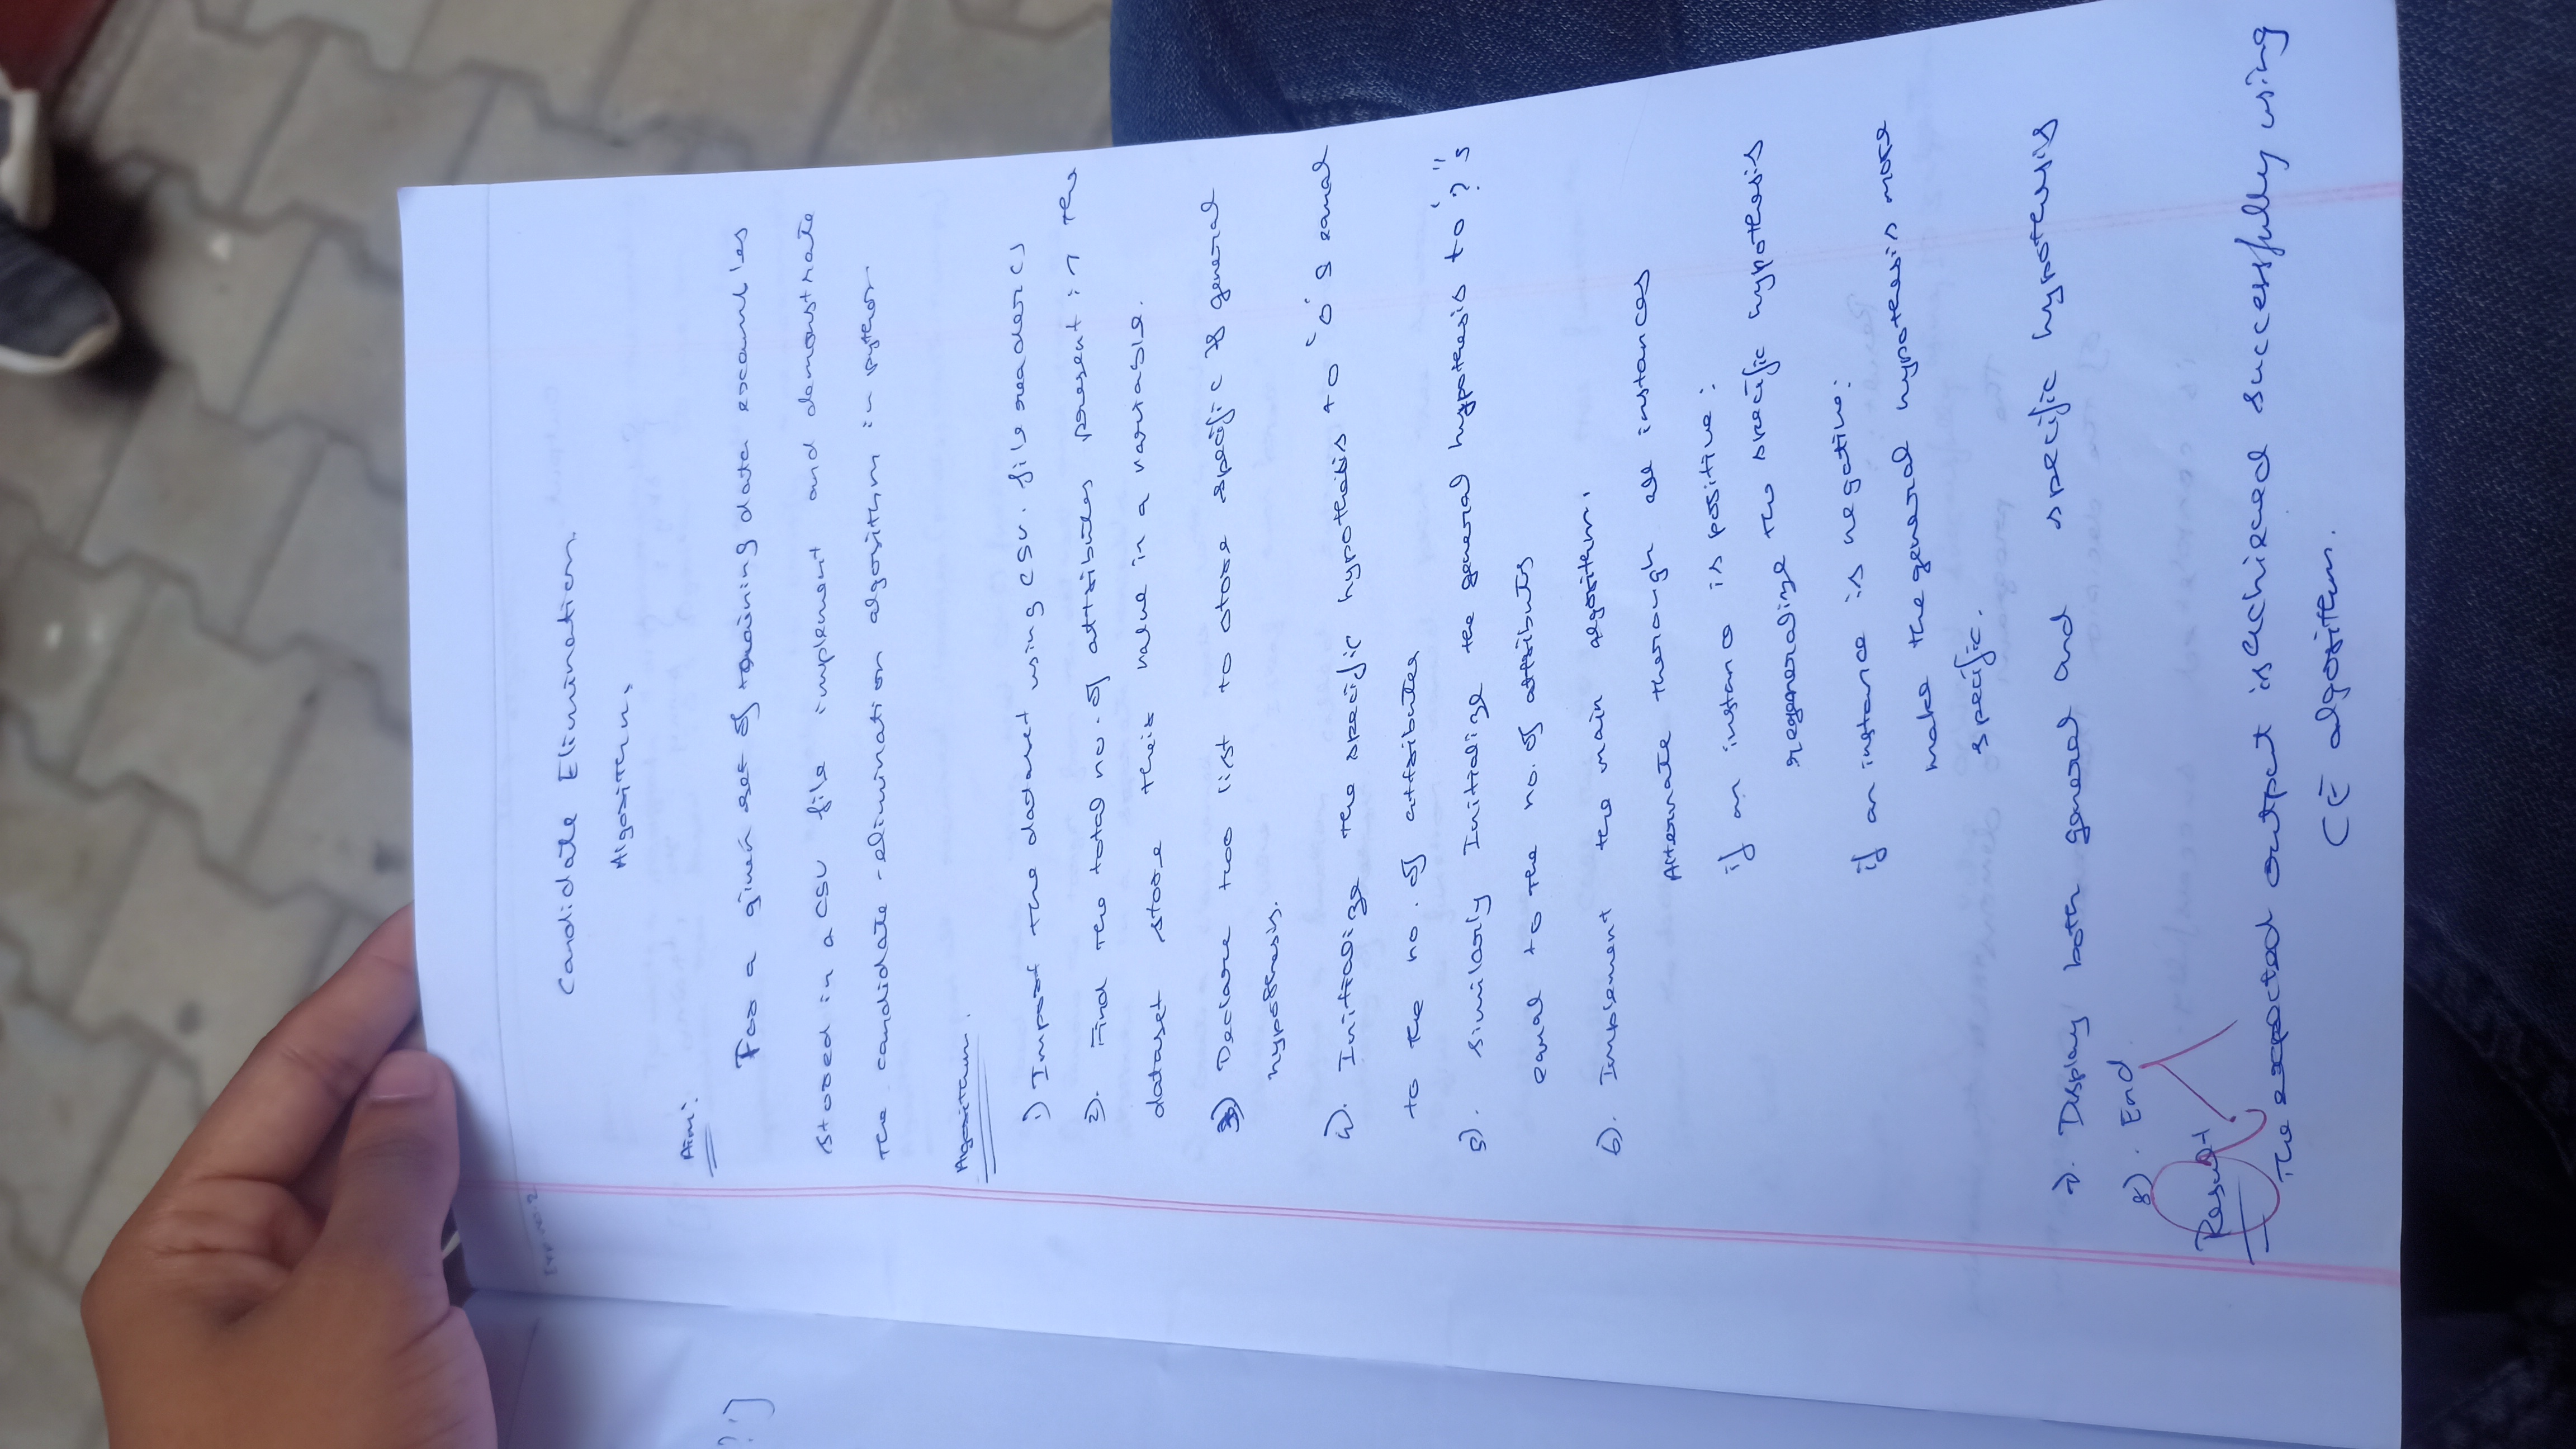 Exp. no: 2
Candidate Elimination.
Algorithm.
Aim:
For a given set of training data examples
stored in a CSV file implement and demonstrate
the candidate-elimination algorithm in python
Algorithm.
1) Import the dataset using csv. file reader()
2). Find the total no. of attributes present in the
dataset store their value in a variable.
3) Declare two list to store specific & general
hypothesis.
4). Initialize the specific hypothesis to '0's equal
to the no. of attributes
5). Similarly Initialize the general hypothesis to '?'s
equal to the no. of attributes
6). Implement the main algorithm.
Alternate through all instances
if an instance is positive:
regeneralize the specific hypothesis
if an instance is negative:
make the general hypothesis more
specific.
7). Display both general and specific hypothesis
8). End
Result
The expected output is achieved successfully using
CE algorithm.
?']